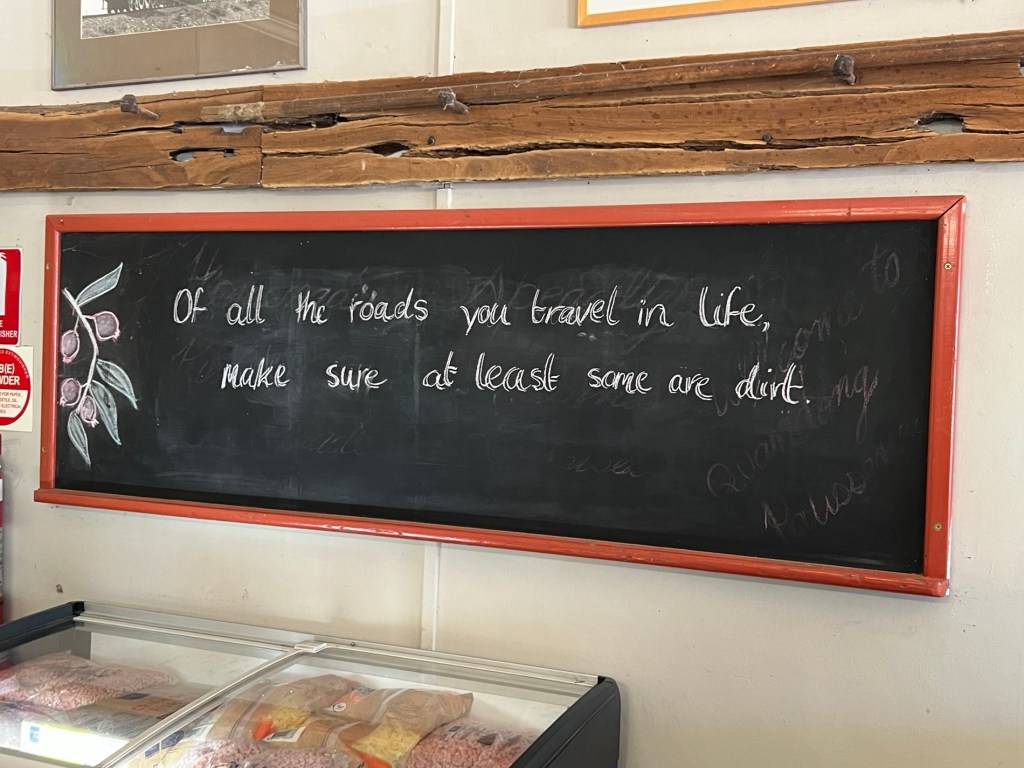 Of all the roads you travel in life,
make sure at least some are dirt.
Welcome to
Quandong
ISHER
B(E)
WDER